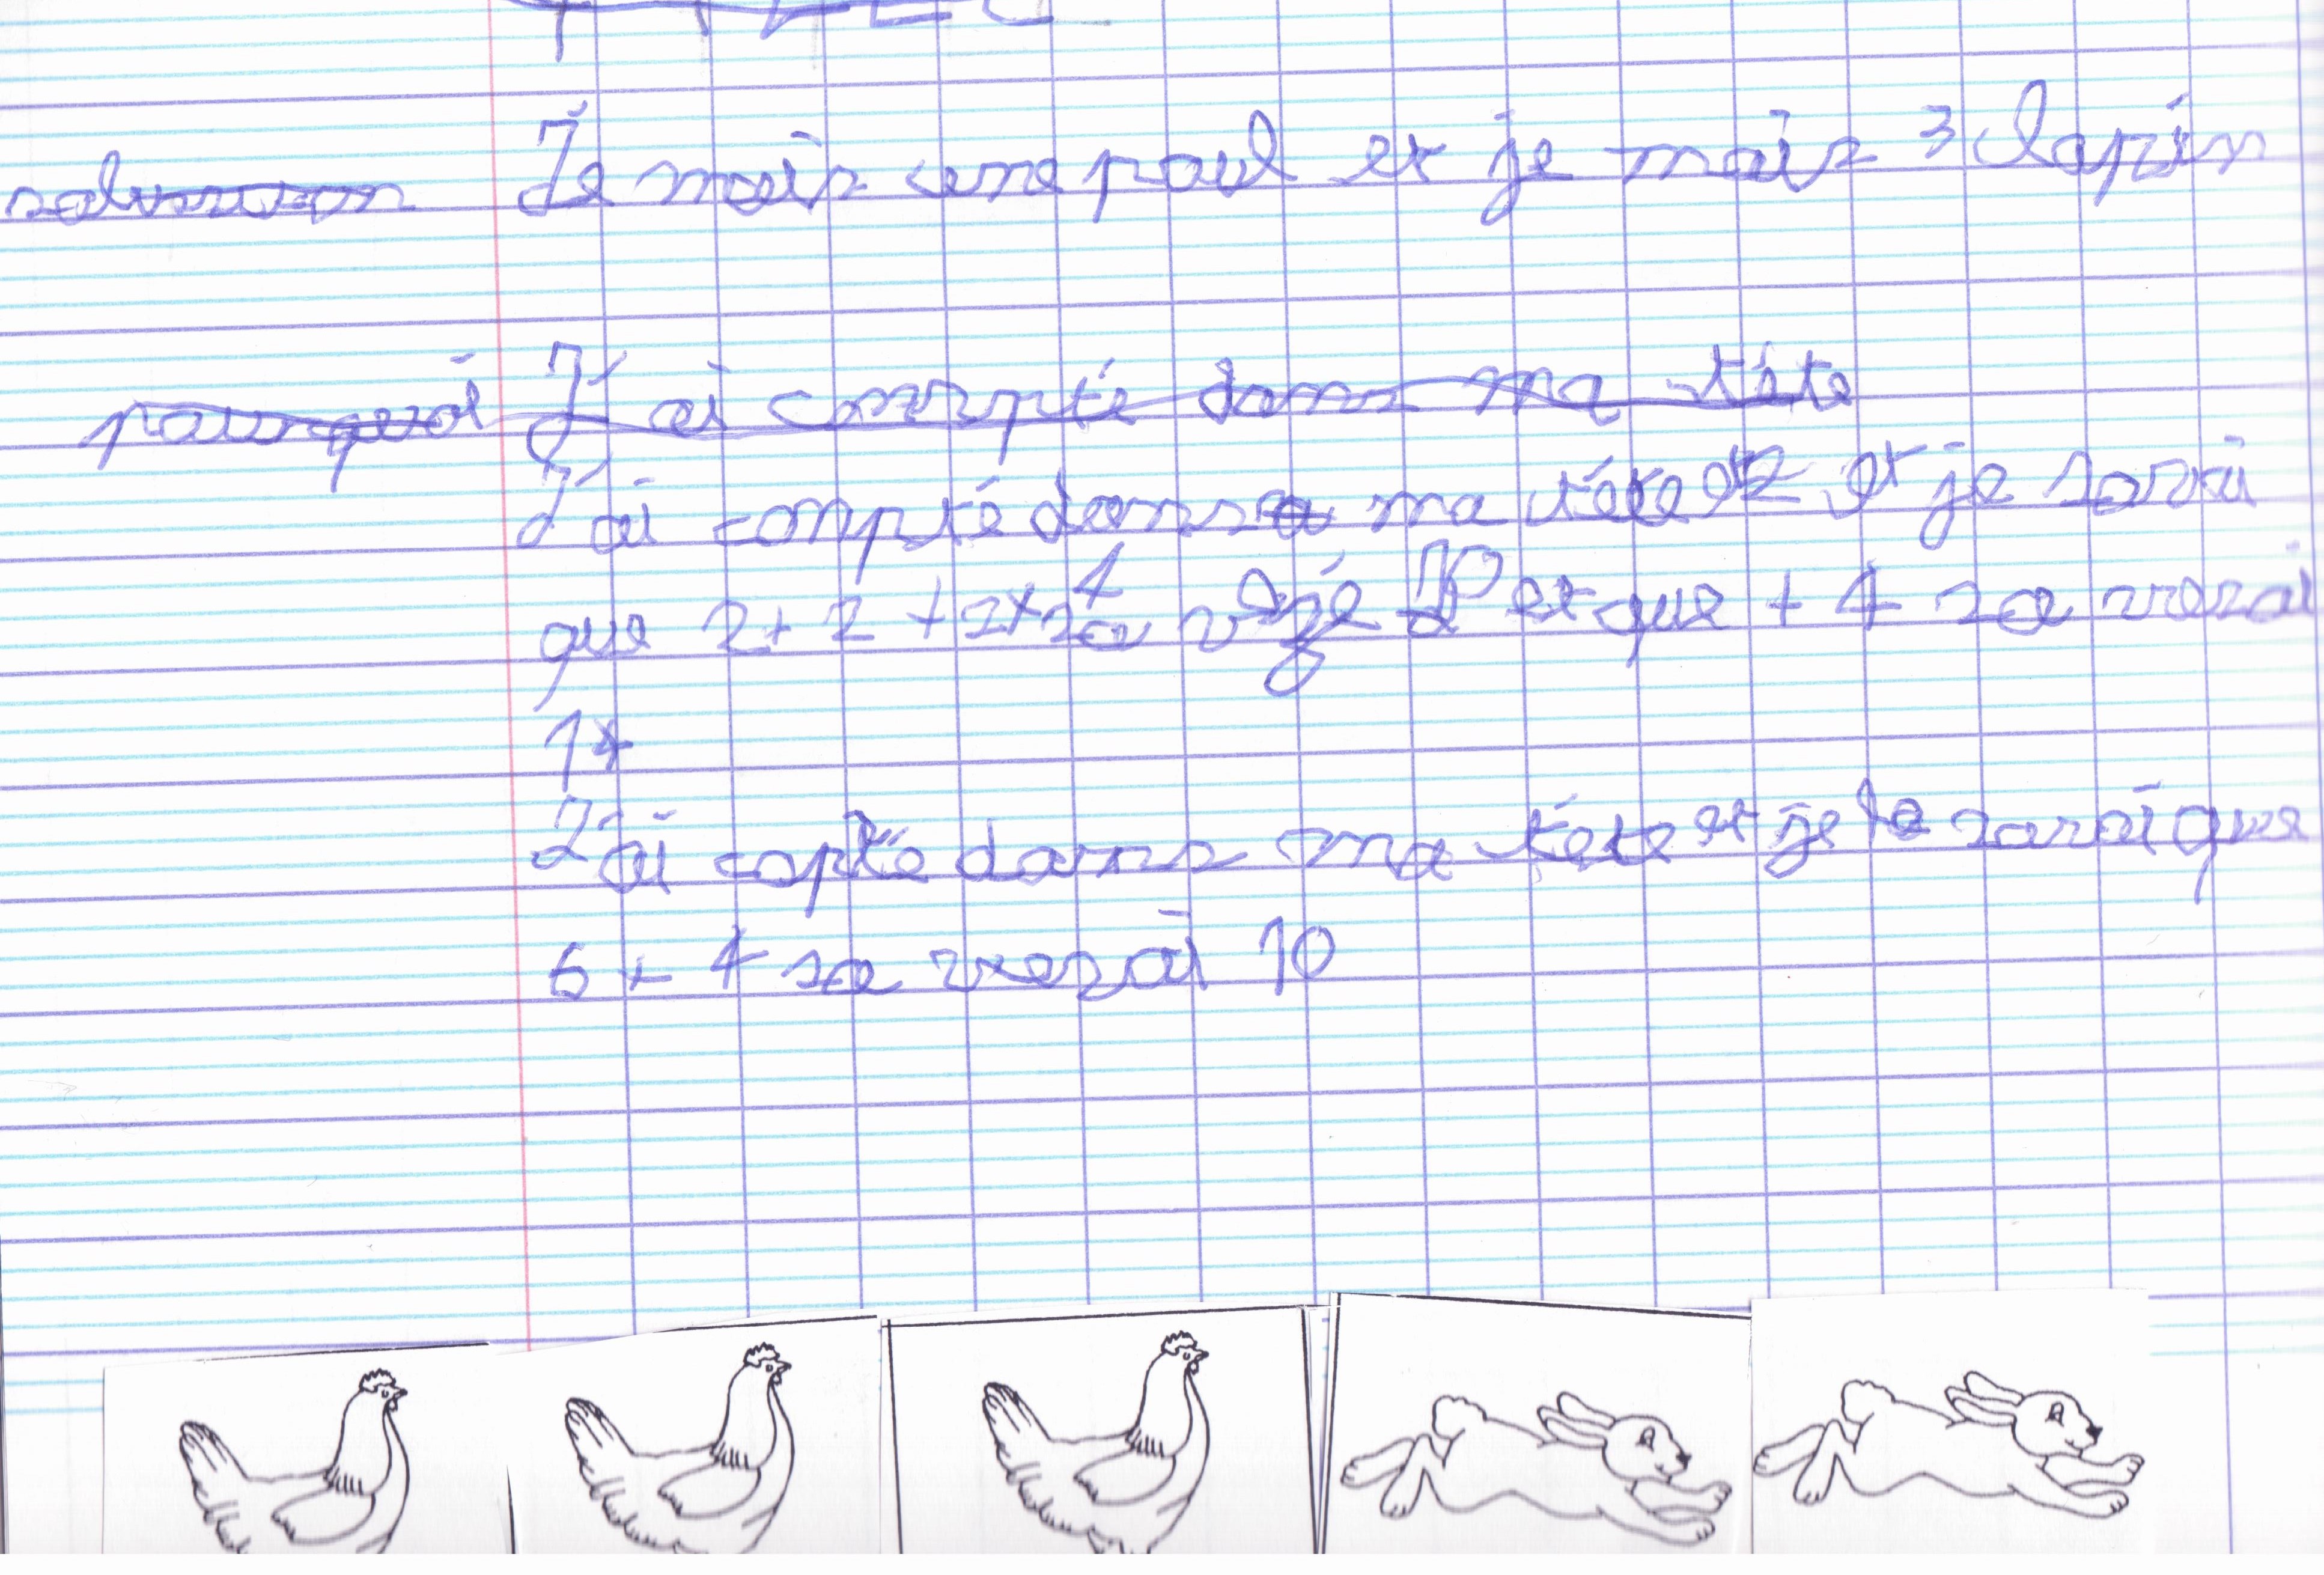 solution Je mais une poul et je mais 3 lapin
pourquoi J'ai compté dans ma tête
J'ai conpté dans ma tête et je savai
que 2+2+2+4 sa et que + 4 sa verai
14
J'ai copté dans ma tête et je savai que
6 + 4 sa verai 10